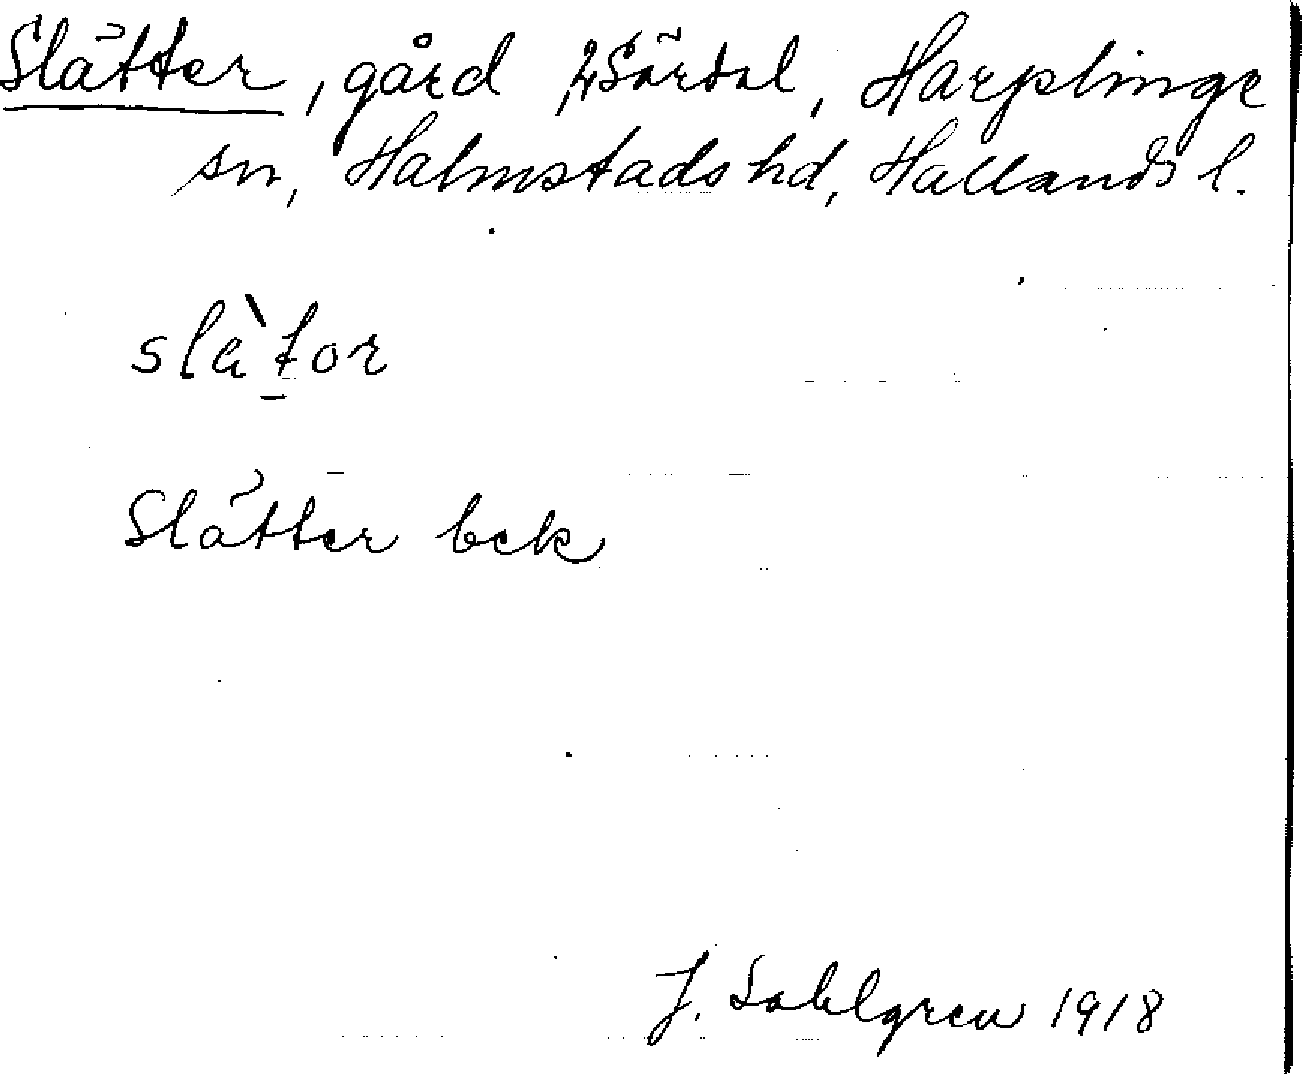 Slätter, gård, Särdal, Harplinge
sn, Halmstads hd, Hallands l.
slàtor
Slätter bek
J. Sahlgren 1918